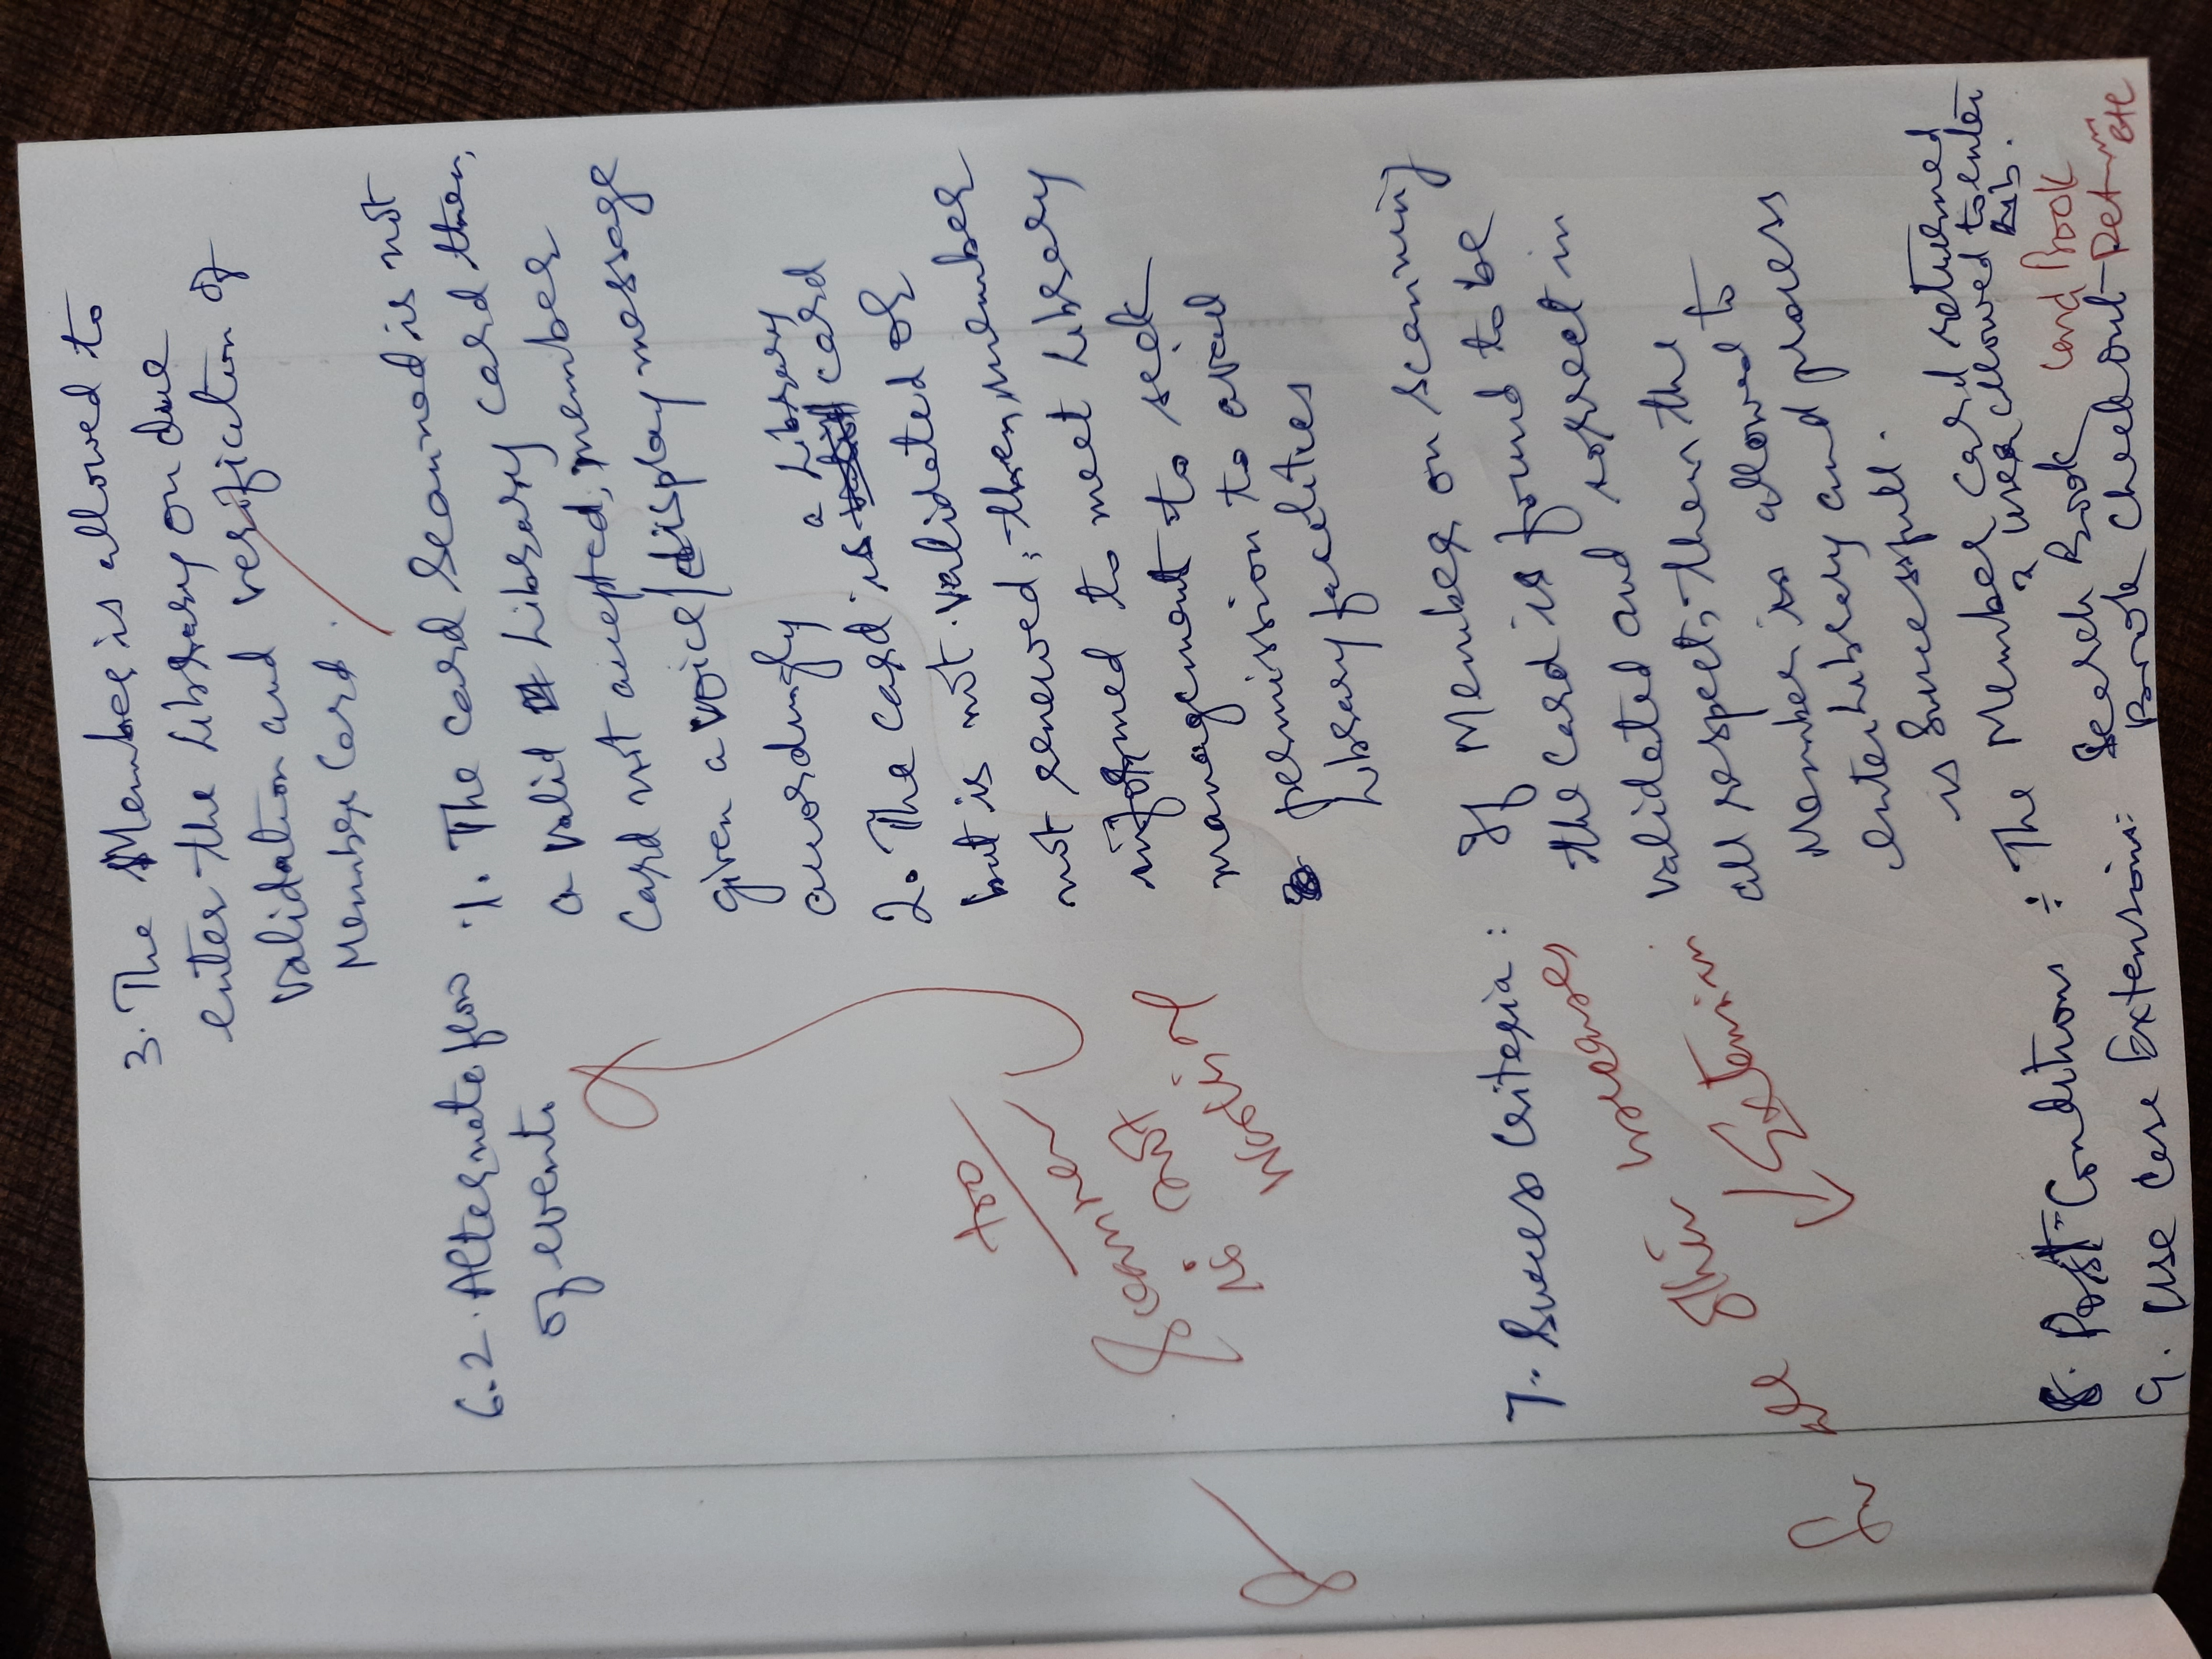 3. The Member is allowed to
enter the Library on due
validation and verification of
Member Card.
6.2. Alternate flow
of events
1. The card Scanned is not
a valid Library card then,
Card not accepted, member
given a voice/display message
accordingly
2. The card is a Library card
but is not validated or
not renewed, then, member
informed to meet Library
management to seek
permission to avail
Library facilities
too
Scanner
is not
working
7. Success Criteria:
If Member on scanning
the card is found to be
validated and correct in
all respect, then the
Member is allowed to
enter Library and process
is Successfull.
for all other usecases
Extension
8. Post-Conditions ÷ The Member Card returned
& user allowed to enter
Lib.
9. Use Case Extensions: Search Book
Book Checkout
Book
Return
etc